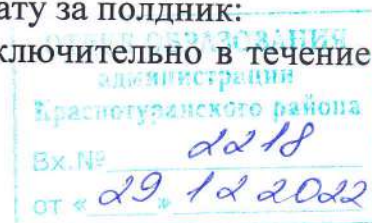 ату за полдник:
ключительно в течение
ОТДЕЛ ОБРАЗОВАНИЯ
администрации
Краснотуранского района
Вх.№ 2218
от « 29 » 12 2022